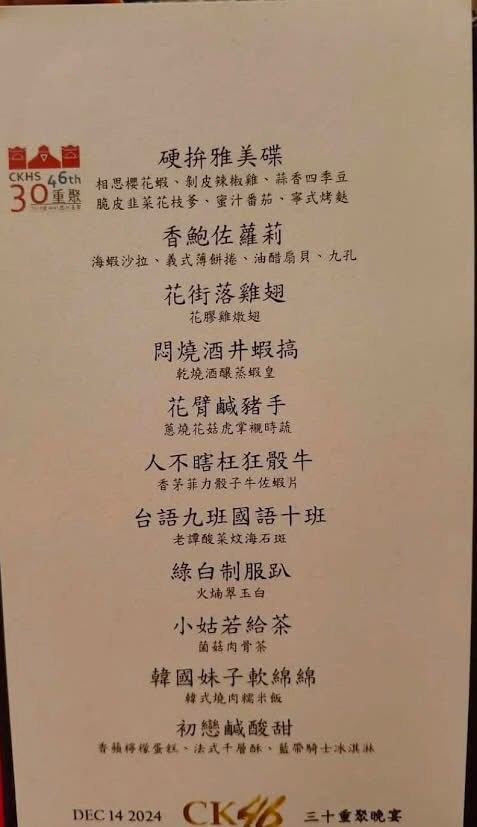 CKHS 46th
30重聚
硬拚雅美碟
相思櫻花蝦、剝皮辣椒雞、蒜香四季豆
脆皮韭菜花枝爹、蜜汁番茄、寧式烤麩
香鮑佐蘿莉
海蝦沙拉、義式薄餅捲、油醋扇貝、九孔
花街落雞翅
花膠雞燉翅
悶燒酒井蝦搞
乾燒酒釀蒸蝦皇
花臂鹹豬手
蔥燒花菇虎掌襯時蔬
人不瞎枉狂骰牛
香茅菲力骰子牛佐蝦片
台語九班國語十班
老譚酸菜炆海石斑
綠白制服趴
火焫翠玉白
小姑若給茶
菌菇肉骨茶
韓國妹子軟綿綿
韓式燒肉糯米飯
初戀鹹酸甜
香蘋檸檬蛋糕、法式千層酥、藍帶騎士冰淇淋
DEC 14 2024 CK46 三十重聚晚宴